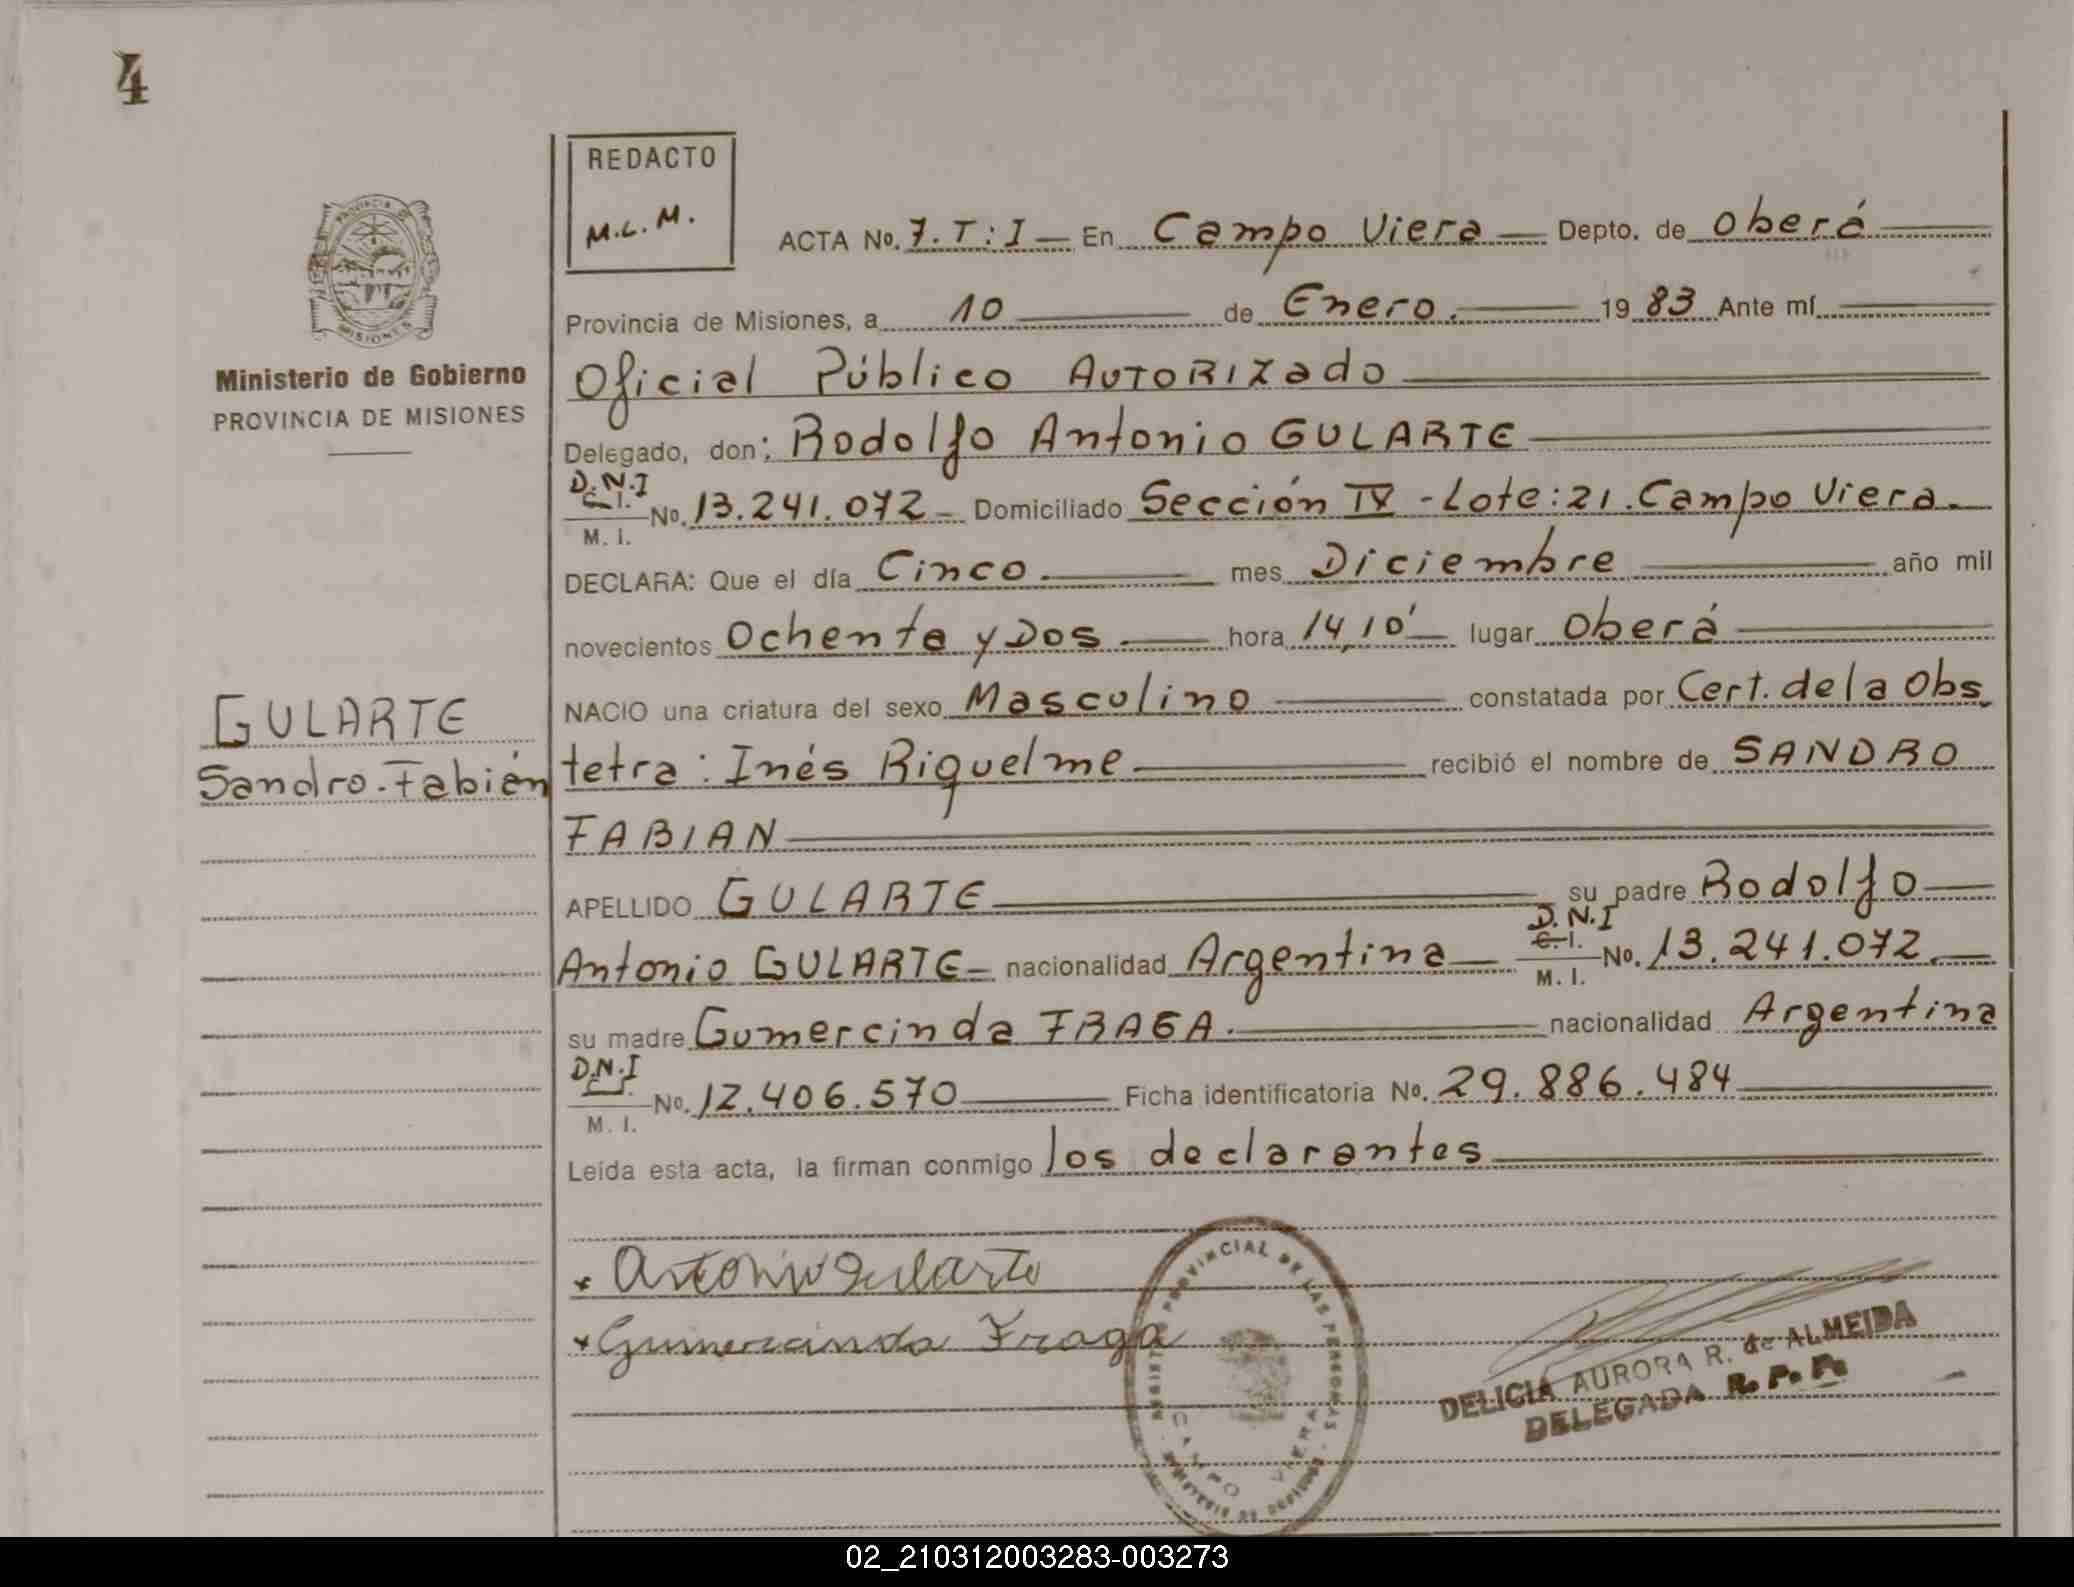 4
REDACTO
M.L.M.
ACTA No. 7. T: I — En Campo Viera — Depto. de Oberá
Provincia de Misiones, a 10 de Enero. 1983 Ante mí
Ministerio de Gobierno
PROVINCIA DE MISIONES
Oficial Público AUTORIZAdo
Delegado, don: Rodolfo Antonio GULARTE
D.N.I
C. I.
M. I. No. 13.241.072 - Domiciliado Sección IV - Lote: 21. Campo Viera.
DECLARA: Que el día Cinco. mes Diciembre año mil
novecientos Ochenta y Dos. hora 14,10' lugar Oberá
NACIO una criatura del sexo Masculino constatada por Cert. de la Obs
tetra: Inés Riquelme recibió el nombre de SANDRO
FABIAN
GULARTE
Sandro-Fabián
APELLIDO GULARTE su padre Rodolfo
Antonio GULARTE nacionalidad Argentina D.N.I C. I. M. I. No. 13.241.072.
su madre Gumercinda FRAGA. nacionalidad Argentina
D.N.I
M. I. No. 12.406.570 Ficha identificatoria No. 29.886.484
Leída esta acta, la firman conmigo los declarantes
Antonio Gularte
Gumercinda Fraga
PROVINCIAL DE LAS PERSONAS
CAMPO VIERA
DELICIA AURORA R. de ALMEIDA
DELEGADA R. P. P.
02_210312003283-003273